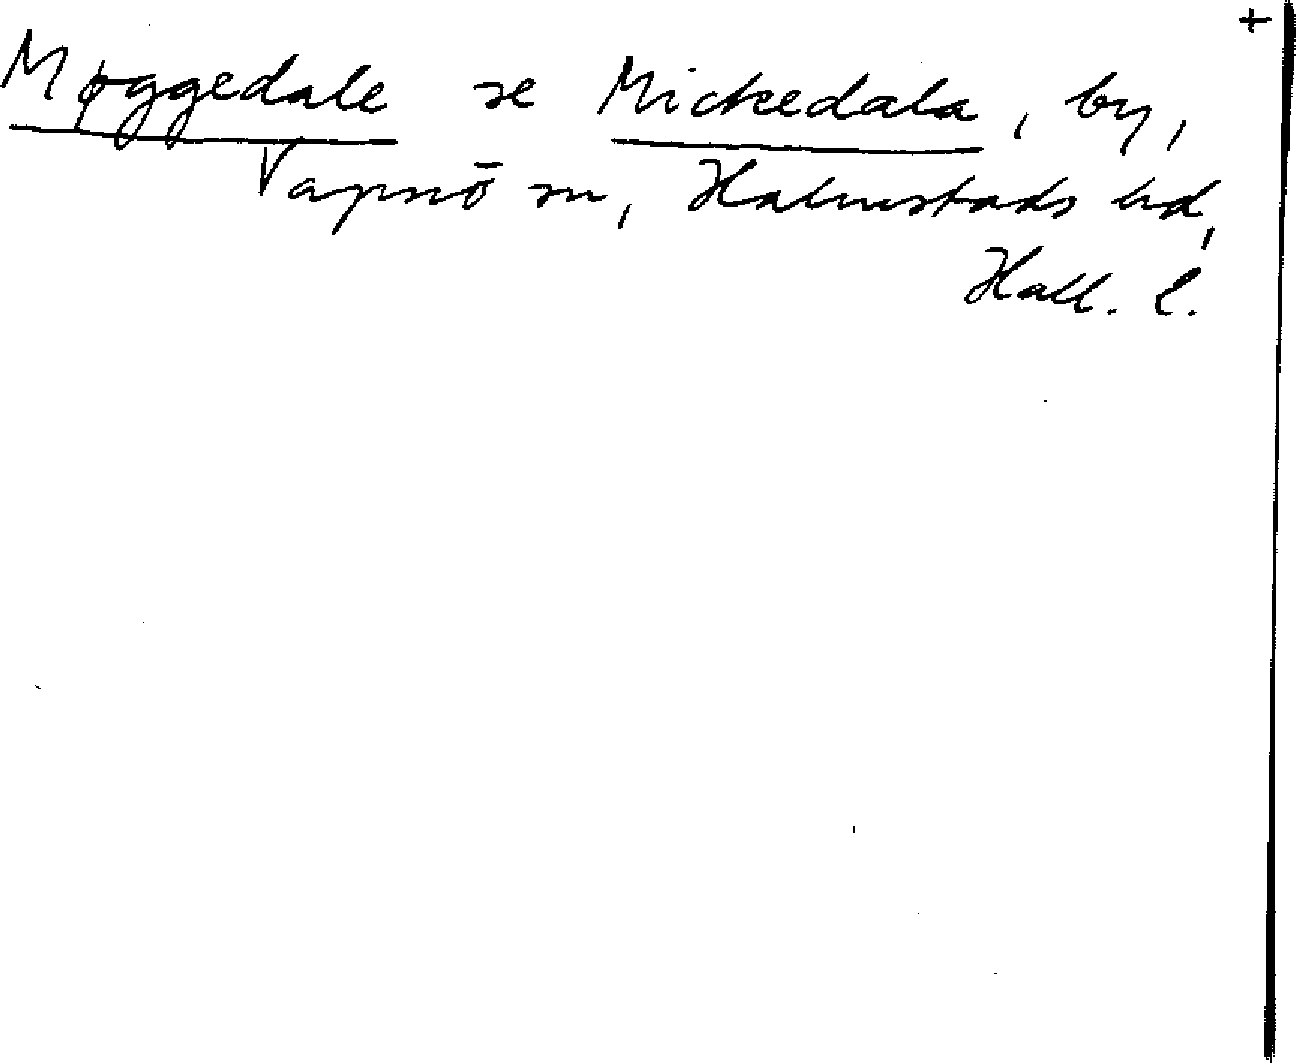 +
Møggedale se Mickedala, by,
Vapnö sn, Halmstads hd,
Hall. l.